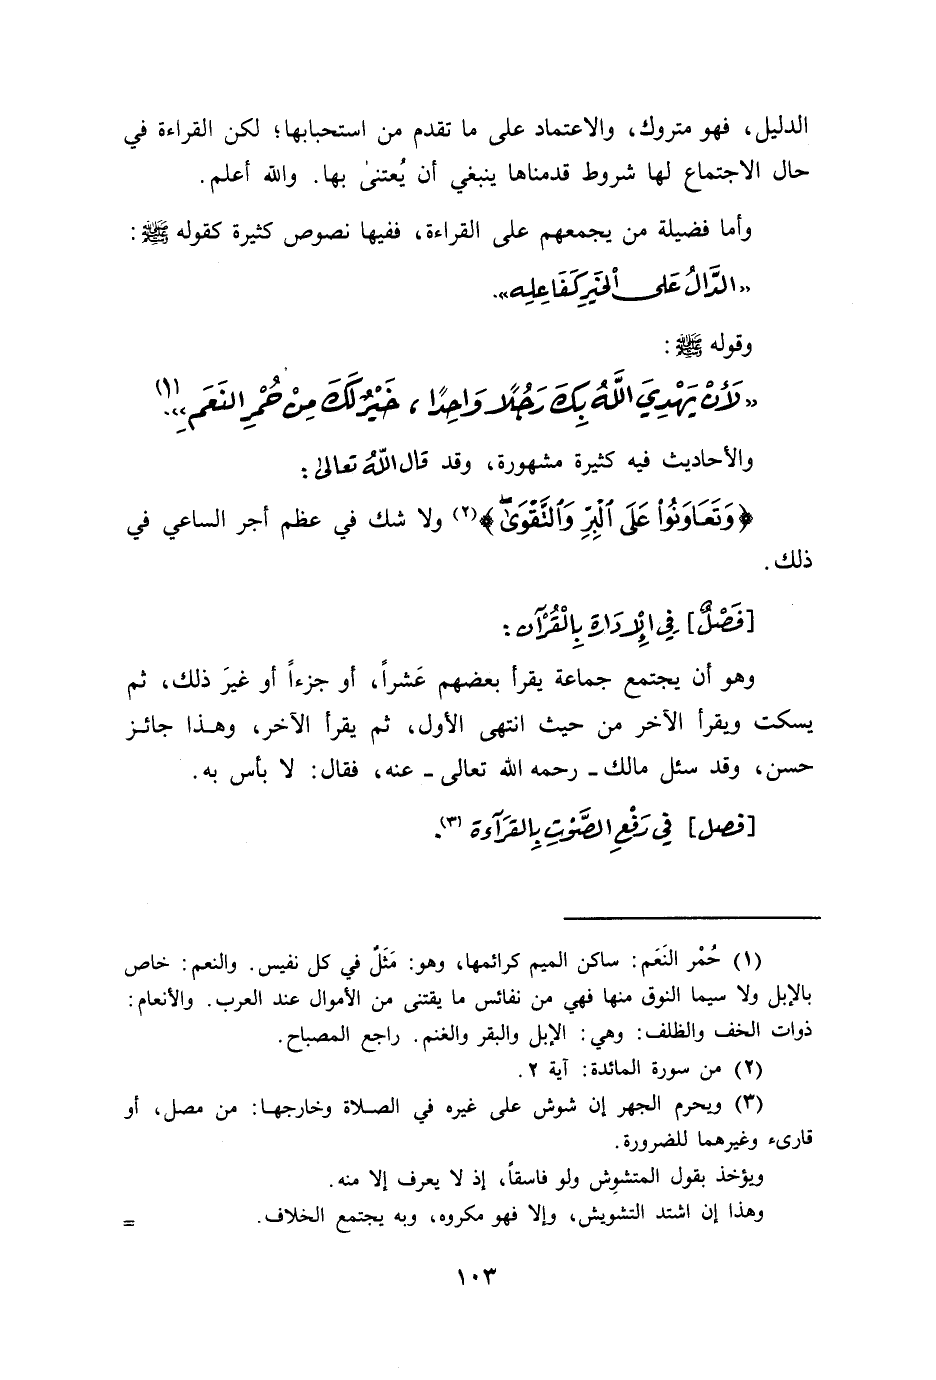 الدليل، فهو متروك، والاعتماد على ما تقدم من استحبابها؛ لكن القراءة في
حال الاجتماع لها شروط قدمناها ينبغي أن يُعتنىٰ بها. والله أعلم.
وأما فضيلة من يجمعهم على القراءة، ففيها نصوص كثيرة كقوله ﷺ:
«الدَّالُ عَلى الْخَيرِ كَفَاعِلِه».
وقوله ﷺ:
«لَأَنْ يَهْدِيَ اللَّهُ بِكَ رَجُلًا وَاحِدًا، خَيْرٌ لَكَ مِنْ حُمْرِ النَّعَمِ».(١)
والأحاديث فيه كثيرة مشهورة، وقد قال اللّهُ تعالىٰ:
﴿وَتَعَاوَنُوا۟ عَلَى ٱلْبِرِّ وَٱلتَّقْوَىٰۖ﴾(٢) ولا شك في عظم أجر الساعي في
ذلك.
[فَصْلٌ] فِي الإِدَارَةِ بِالْقُرْآنِ:
وهو أن يجتمع جماعة يقرأ بعضهم عَشراً، أو جزءاً أو غيرَ ذلك، ثم
يسكت ويقرأ الآخر من حيث انتهى الأول، ثم يقرأ الآخر، وهـذا جائـز
حسن، وقد سئل مالك ـ رحمه الله تعالى ـ عنه، فقال: لا بأس به.
[فصل] فِي رَفْعِ الصَّوْتِ بِالقرَآءة(٣).
(١) حُمْر النَعَم: ساكن الميم كرائمها، وهو: مَثَلٌ في كل نفيس. والنعم: خاص
بالإبل ولا سيما النوق منها فهي من نفائس ما يقتنى من الأموال عند العرب. والأنعام:
ذوات الخف والظلف: وهي: الإبل والبقر والغنم. راجع المصباح.
(٢) من سورة المائدة: آية ٢.
(٣) ويحرم الجهر إن شوش على غيره في الصـلاة وخارجهـا: من مصل، أو
قارىء وغيرهما للضرورة.
ويؤخذ بقول المتشوِش ولو فاسقاً، إذ لا يعرف إلا منه.
وهذا إن اشتد التشويش، وإلا فهو مكروه، وبه يجتمع الخلاف. =
١٠٣